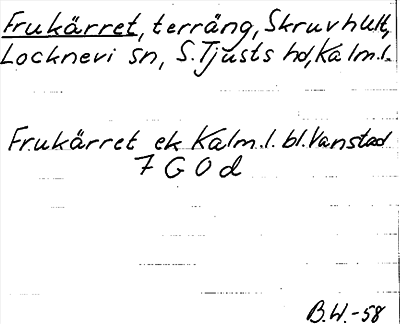 Frukärret, terräng, Skruvhult,
Locknevi sn, S. Tjusts hd, Kalm.l.
Frukärret ek Kalm.l. bl. Vanstad
7 G O d
B.W.-58